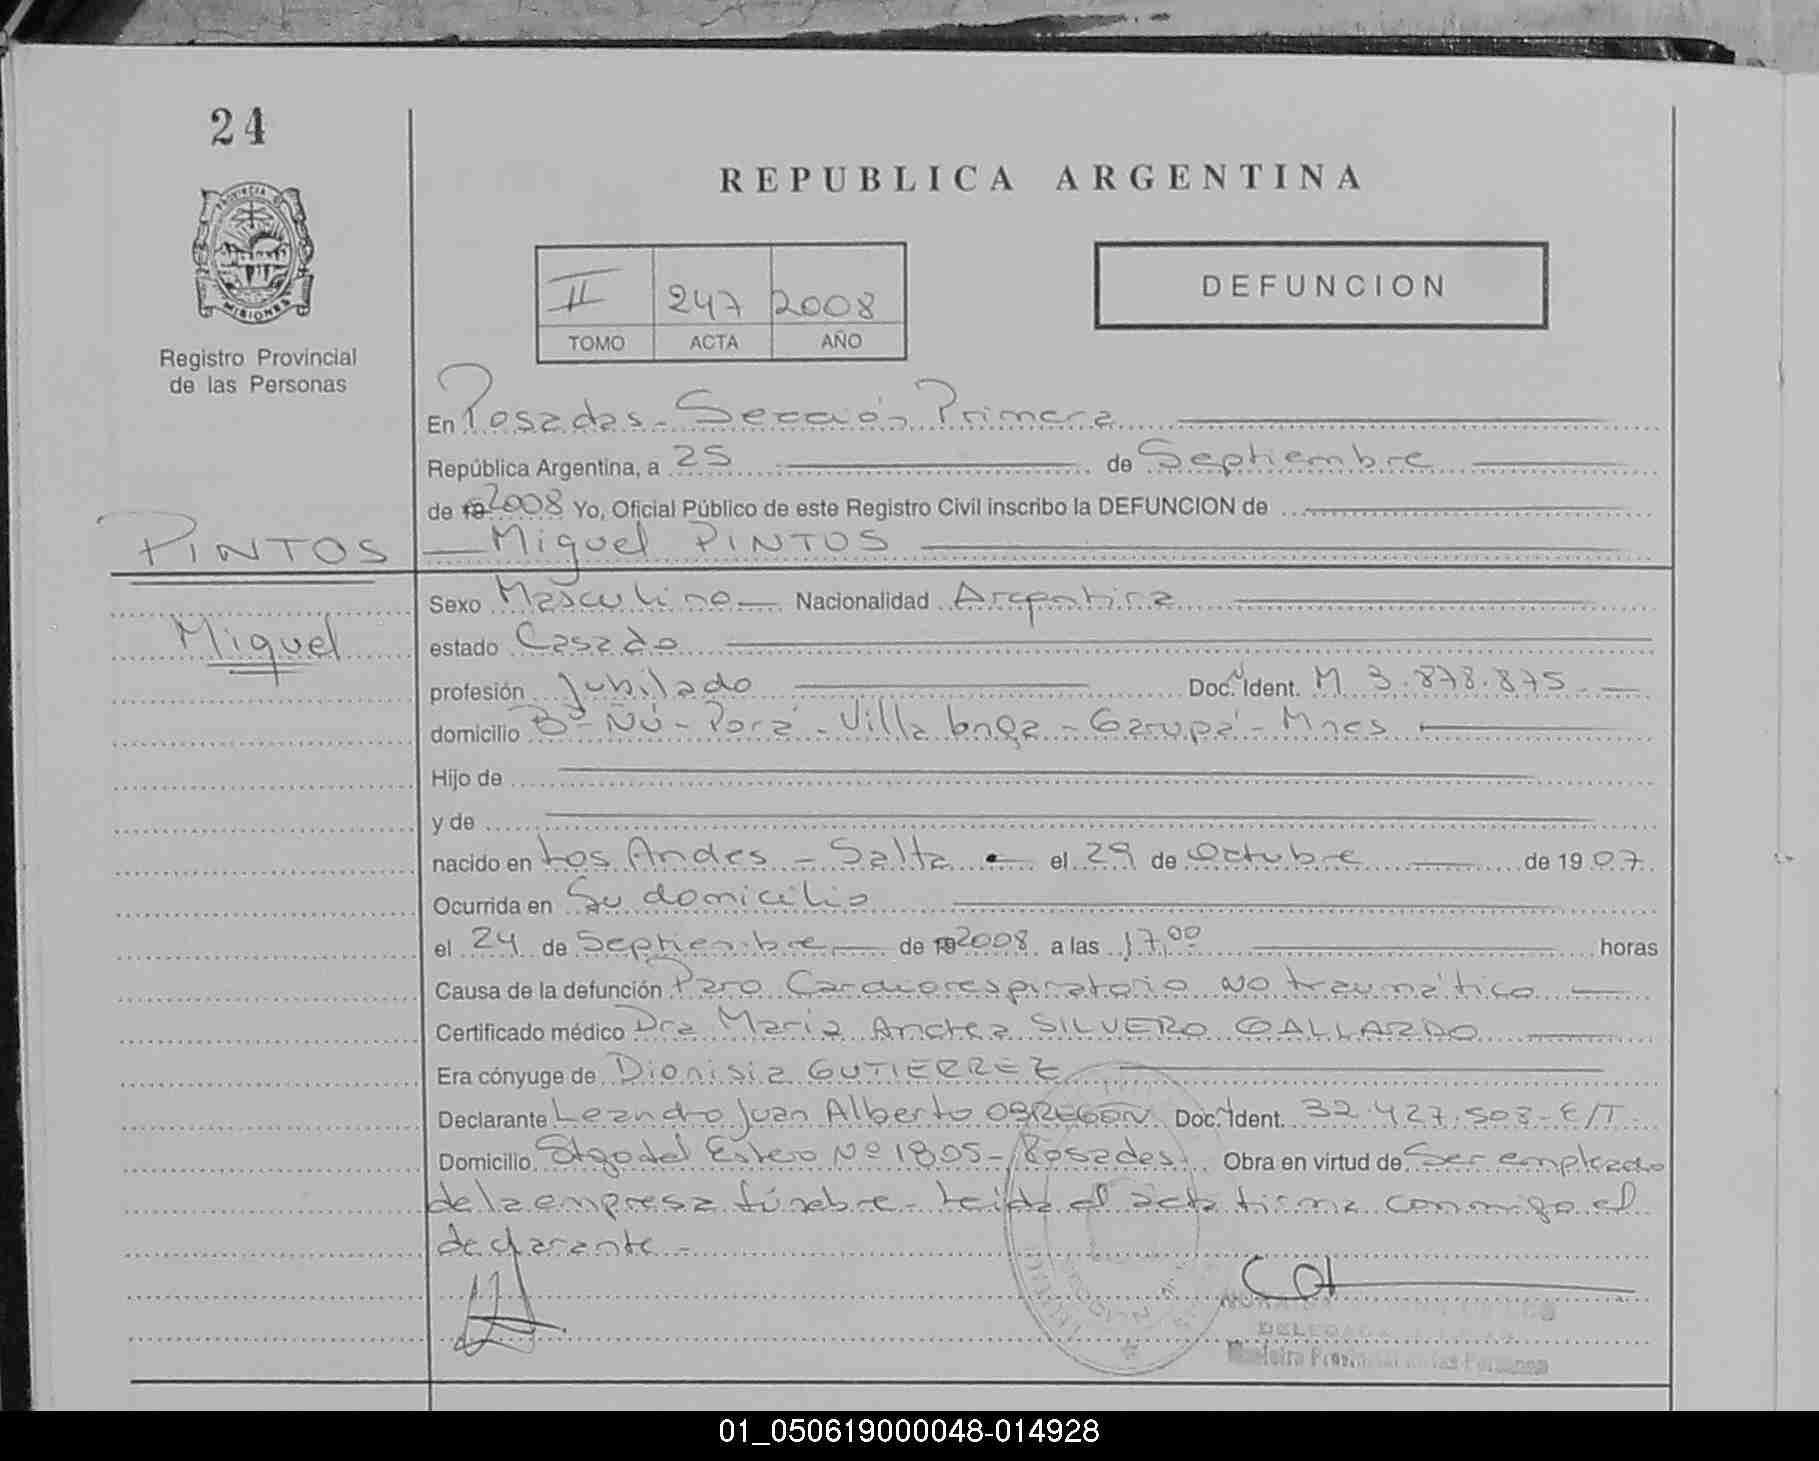 24
REPUBLICA ARGENTINA
PROVINCIA DE
MISIONES
Registro Provincial
de las Personas
II 247 2008
TOMO ACTA AÑO
DEFUNCION
En Posadas - Sección Primera
República Argentina, a 25 de Septiembre
de 19 2008 Yo, Oficial Público de este Registro Civil inscribo la DEFUNCION de
PINTOS
Miguel PINTOS
Miguel
Sexo Masculino Nacionalidad Argentina
estado Casado
profesión Jubilado Doc. Ident. M 3.878.875
domicilio Bº Ñú - Porá - Villa - Garupá - Mnes
Hijo de
y de
nacido en Los Andes - Salta el 29 de Octubre de 19 07
Ocurrida en Su domicilio
el 24 de Septiembre de 19 2008 a las 17,00 horas
Causa de la defunción Paro Cardiorespiratorio No traumático
Certificado médico Dra Maria Andrea SILVERO GALLARDO
Era cónyuge de Dionisia GUTIERREZ
Declarante Leandro Juan Alberto OBREGON Doc. Ident. 32.427.503 - E/T
Domicilio Stgo del Estero Nº 1805 - Posadas Obra en virtud de Ser empleado
de la empresa fúnebre - Leida el acta firma conmigo el
declarante -
Provincial de las Personas
01_050619000048-014928